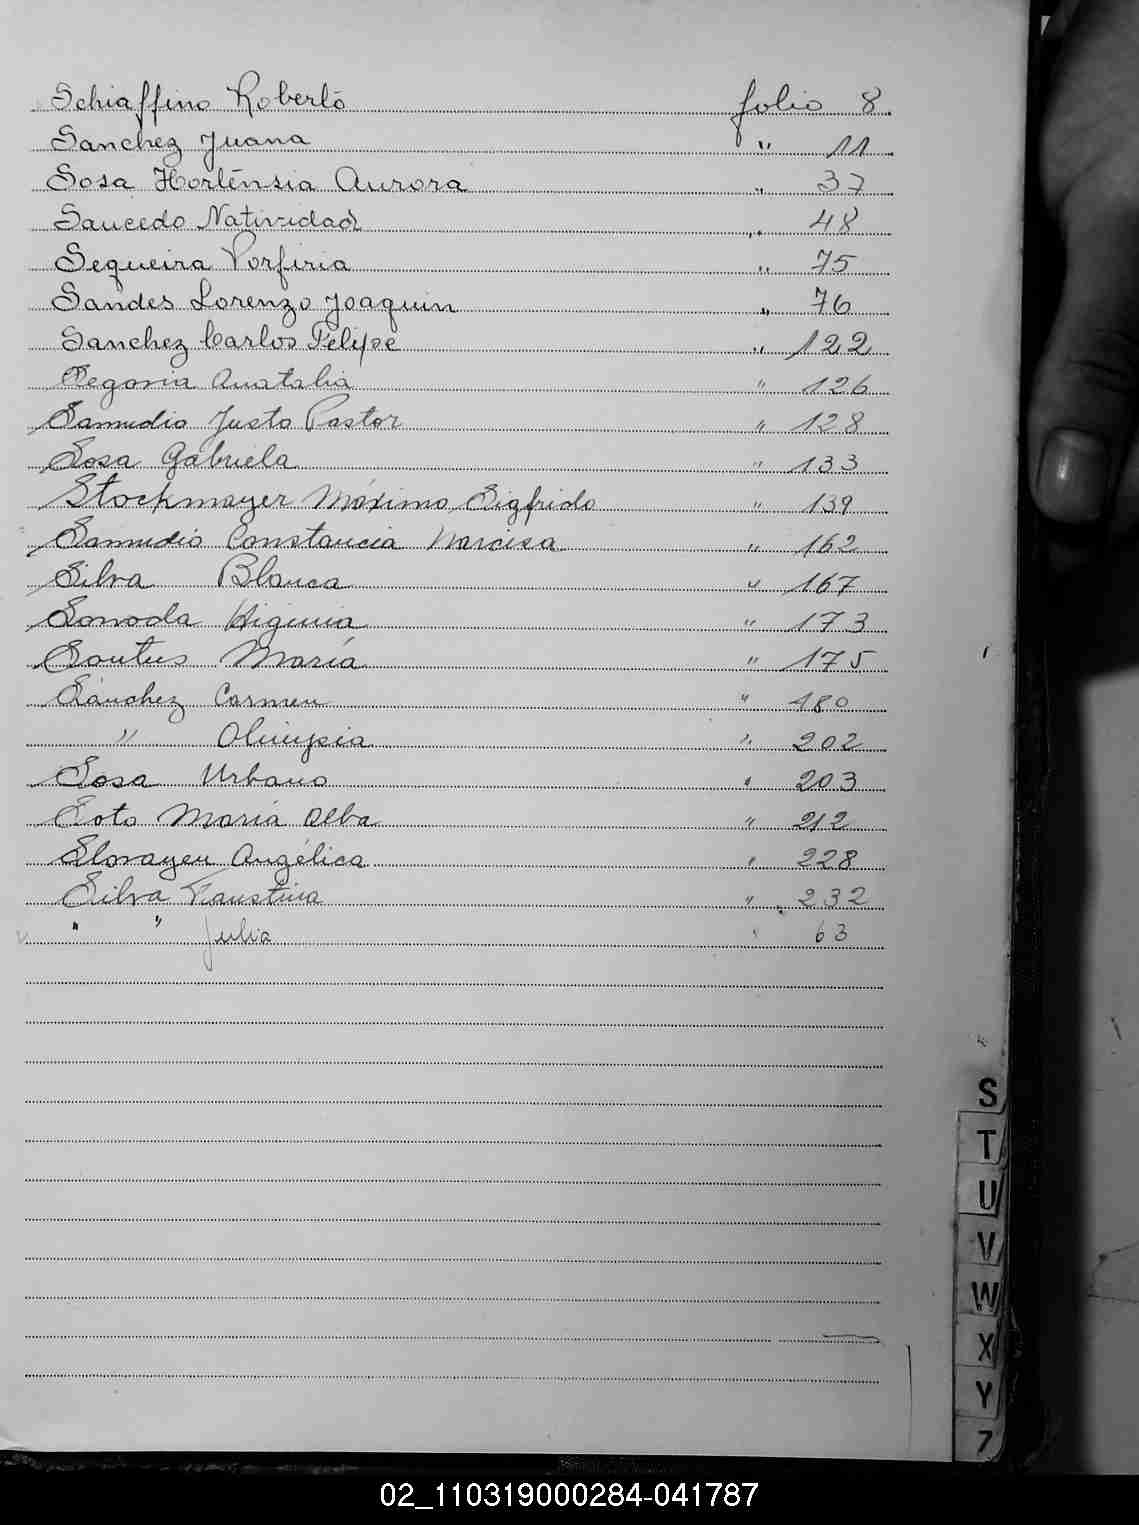 Schiaffino Roberto folio 8
Sanchez Juana " 11
Sosa Hortensia Aurora " 37
Saucedo Natividad " 48
Sequeira Porfiria " 75
Sandes Lorenzo Joaquin " 76
Sanchez Carlos Felipe " 122
Segovia Anatalia " 126
Samudio Justo Pastor " 128
Sosa Gabriela " 133
Stockmayer Máximo Sigfrido " 139
Samudio Constancia Narcisa " 162
Silva Blanca " 167
Sanoda Higinia " 173
Santus María " 175
Sánchez Carmen " 180
" Olimpia " 202
Sosa Urbano " 203
Soto María Alba " 212
Slovayen Angélica " 228
Silva Faustina " 232
" " Julia " 63
S
T
U
V
W
X
Y
Z
02_110319000284-041787